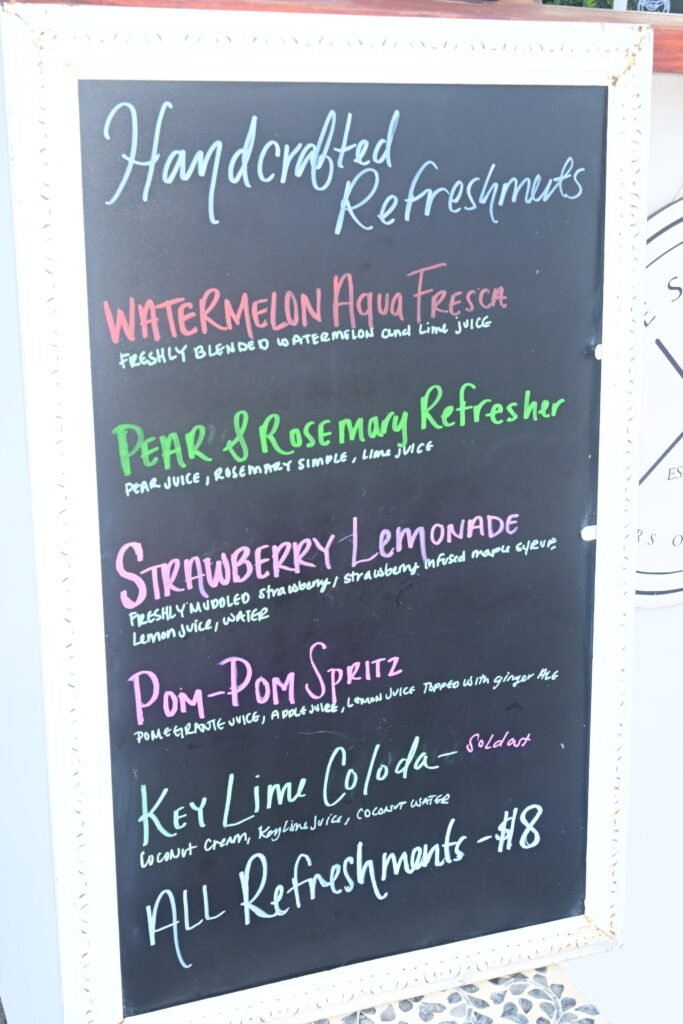 Handcrafted
Refreshments
WATERMELON AQUA FRESCA
FRESHLY BLENDED WATERMELON and Lime JUICE
PEAR & ROSEMARY Refresher
PEAR JUICE, ROSEMARY SIMPLE, Lime JUICE
STRAWBERRY LEMONADE
FRESHLY MUDDLED Strawberry, Strawberry Infused maple SYRUP
Lemon Juice, WATER
POM-POM SPRITZ
POMEGRANTE JUICE, APPLE JUICE, LEMON JUICE TOPPED with ginger ALE
KEY Lime Coloda- Sold out
COCONUT CREAM, Key lime Juice, COCONUT WATER
ALL Refreshments - $8